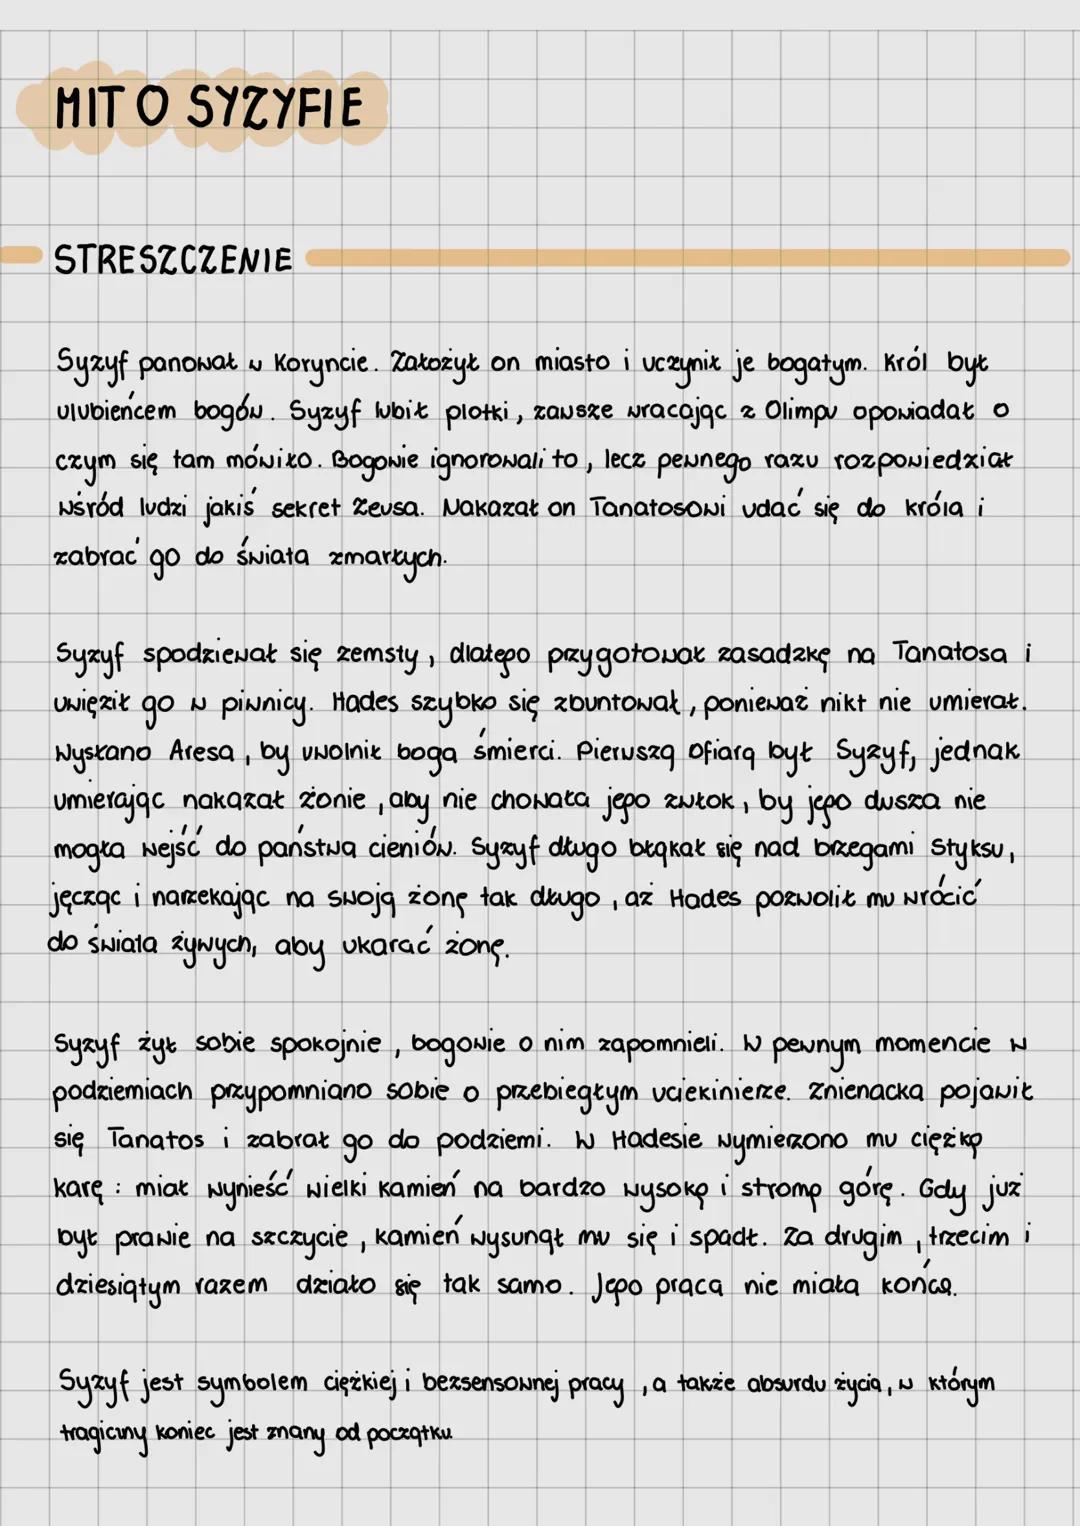 MIT O SYZYFIE
STRESZCZENIE
Syzyf panował w Koryncie. Założył on miasto i uczynił je bogatym. Król był
ulubieńcem bogów. Syzyf lubił plotki, zawsze wracając z Olimpu opowiadał o
czym się tam mówiło. Bogowie ignorowali to, lecz pewnego razu rozpowiedział
wśród ludzi jakiś sekret Zeusa. Nakazał on Tanatosowi udać się do króla i
zabrać go do świata zmarłych.
Syzyf spodziewał się zemsty, dlatego przygotował zasadzkę na Tanatosa i
uwięził go w piwnicy. Hades szybko się zbuntował, ponieważ nikt nie umierał.
Wysłano Aresa, by uwolnił boga śmierci. Pierwszą ofiarą był Syzyf, jednak
umierając nakazał żonie, aby nie chowała jego zwłok, by jego dusza nie
mogła wejść do państwa cieniów. Syzyf długo błąkał się nad brzegami Styksu,
jęcząc i narzekając na swoją żonę tak długo, aż Hades pozwolił mu wrócić
do świata żywych, aby ukarać żonę.
Syzyf żył sobie spokojnie, bogowie o nim zapomnieli. W pewnym momencie w
podziemiach przypomniano sobie o przebiegłym uciekinierze. Znienacka pojawił
się Tanatos i zabrał go do podziemi. W Hadesie wymierzono mu ciężką
karę: miał wynieść wielki kamień na bardzo wysoką i stromą górę. Gdy już
był prawie na szczycie, kamień wysunął mu się i spadł. Za drugim, trzecim i
dziesiątym razem działo się tak samo. Jego praca nie miała końca.
Syzyf jest symbolem ciężkiej i bezsensownej pracy, a także absurdu życia, w którym
tragiczny koniec jest znany od początku